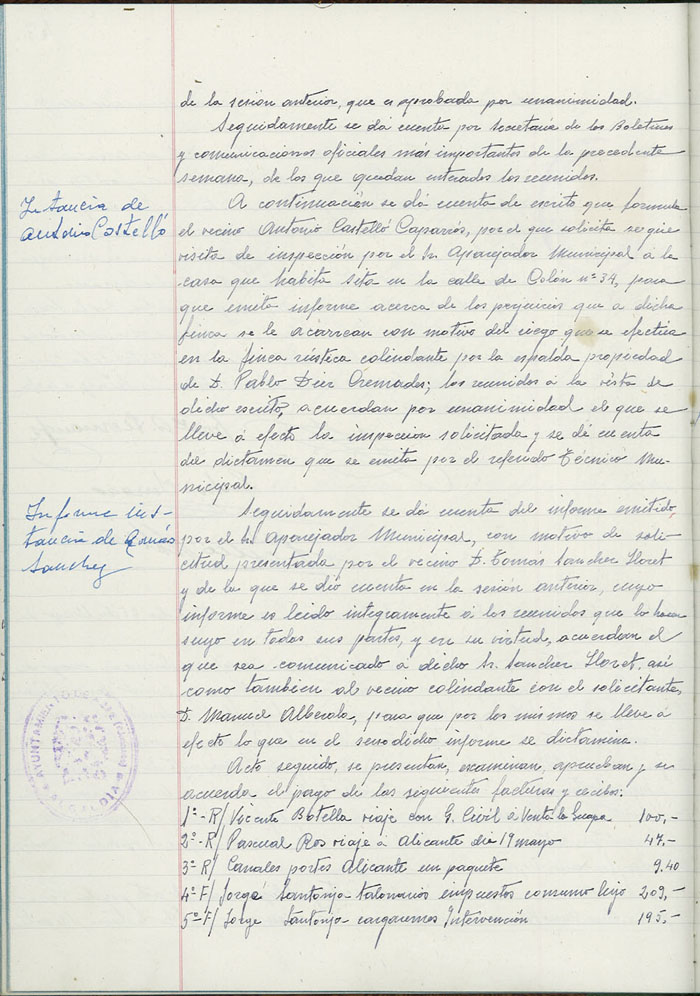 de la sesión anterior, que es aprobada por unanimidad.
Seguidamente se dá cuenta por Secretaría de los Boletines
y comunicaciones oficiales más importantes de la precedente
semana, de los que quedan enterados los reunidos.
Instancia de
Antonio Castelló
A continuación se dá cuenta de escrito que formula
el vecino Antonio Castelló Caparrós, por el que solicita se gire
visita de inspección por el Sr. Aparejador Municipal á la
casa que habita sita en la calle de Colón nº 34, para
que emita informe acerca de los perjuicios que a dicha
finca se le acarrean con motivo del riego que se efectua
en la finca rústica colindante por la espalda propiedad
de D. Pablo Díez Cremades; los reunidos á la vista de
dicho escrito, acuerdan por unanimidad el que se
lleve á efecto la inspección solicitada y se dé cuenta
del dictamen que se emita por el referido Técnico Mu-
nicipal.
Informe ins-
tancia de Tomás
Sanchez
Seguidamente se dá cuenta del informe emitido,
por el Sr. Aparejador Municipal, con motivo de soli-
citud presentada por el vecino D. Tomás Sanchez Lloret
y de la que se dió cuenta en la sesión anterior, cuyo
informe es leido integramente á los reunidos que lo hacen
suyo en todas sus partes, y en su virtud, acuerdan el
que sea comunicado á dicho Sr. Sanchez Lloret, así
como tambien al vecino colindante con el solicitante,
D. Manuel Alberola, para que por los mismos se lleve á
efecto lo que en el susodicho informe se dictamina.
AYUNTAMIENTO DE
ALCALDIA
Acto seguido, se presentan, examinan, aprueban y se
acuerda el pago de las siguientes facturas y recibos.
1º-R/ Vicente Botella viaje con G. Civil á Venta la 100,-
2º-R/ Pascual Ros viaje á Alicante dia 19 mayo 47,-
3º R/ Canales portes Alicante un paquete 9.40
4º F/ Jorge Santonja-talonarios impuestos consumo lujo 209,-
5º-F/ Jorge Santonja-cargaremes Intervención 195,-